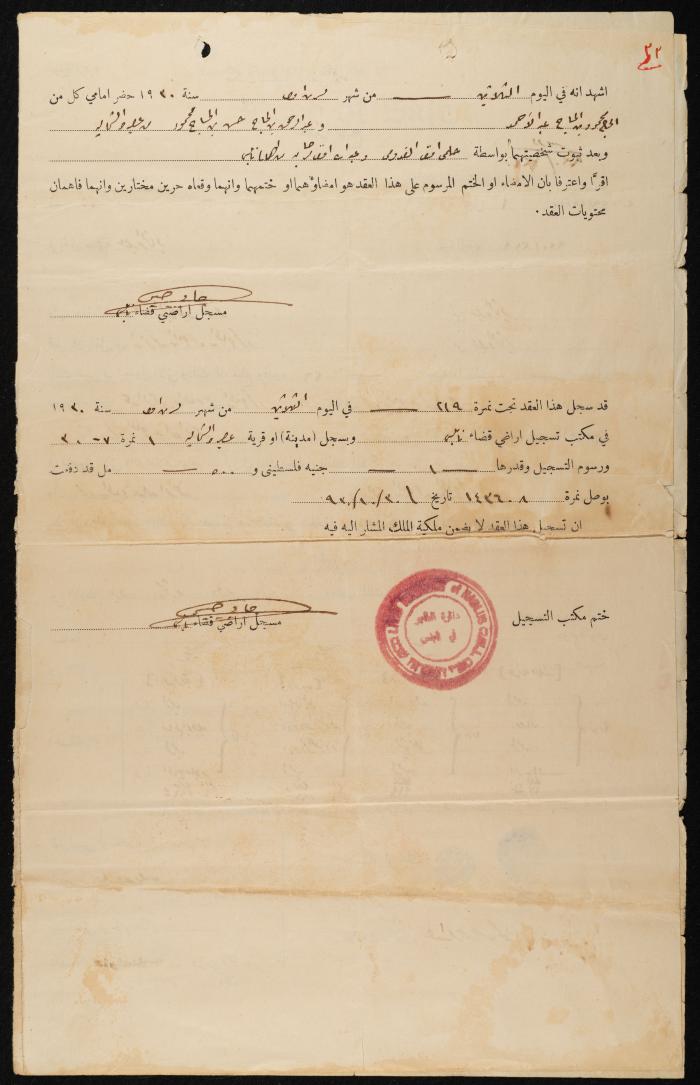 ٣٢
اشهد انه في اليوم الثلاثين من شهر سنة ١٩٣٠ حضر امامي كل من
الحاج محمود بن الحاج عبد الاحمد و عبد الرحمن بن الحاج حسن بن الحاج محمود من
وبعد ثبوت شخصيتهما بواسطة علمي افندي و
اقرَّا واعترفا بان الامضاء او الختم المرسوم على هذا العقد هو امضاؤهما او ختمهما وانهما وقعاه حرين مختارين وانهما فاهمان
محتويات العقد.
مسجل اراضي قضاء نابلس
قد سجل هذا العقد تحت نمرة ٢١٩ في اليوم الثلاثين من شهر سنة ١٩٣٠
في مكتب تسجيل اراضي قضاء نابلس وبسجل (مدينة) او قرية ١ نمرة ٧-٣٠
ورسوم التسجيل وقدرها ١ جنيه فلسطيني و ٥٠٠ مل قد دفعت
بوصل نمرة ١٤٣٦٠٨ تاريخ ٣٠/١٠/٩٣٠
ان تسجيل هذا العقد لا يضمن ملكية الملك المشار اليه فيه
ختم مكتب التسجيل
مسجل اراضي قضاء نابلس